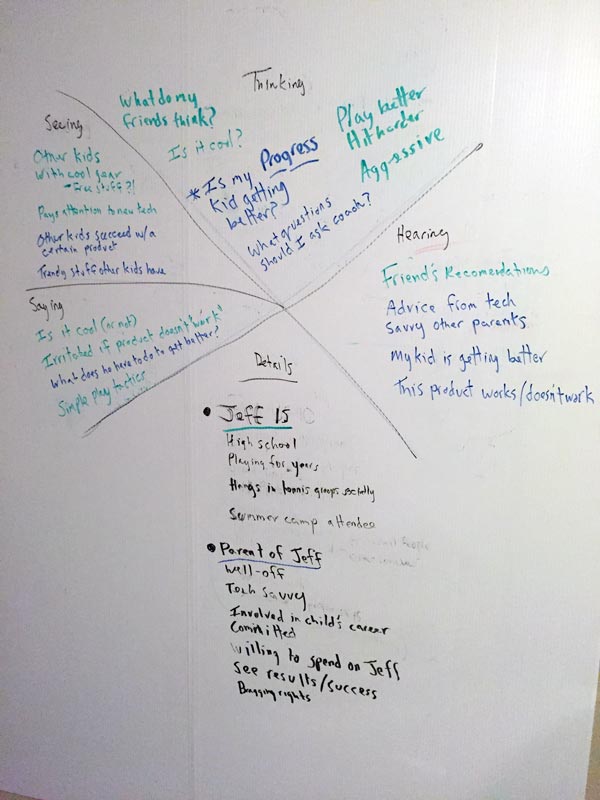 Thinking
What do my
friends think?
Is it cool?
Progress
*Is my
kid getting
better?
What questions
should I ask coach?
Play better
Hit harder
Aggressive
Seeing
Other kids
with cool gear
- Free stuff?!
Pays attention to new tech
Other kids succeed w/a
certain product
Trendy stuff other kids have
Saying
Is it cool (or not)
Irritated if product doesn't "work"
What does he have to do to get better?
Simple play tactics
Hearing
Friend's Recomendations
Advice from tech
Savvy other parents
My kid is getting better
This product works/doesn't work
Details
• Jeff 15
High school
Playing for years
Hangs in tennis groups socially
Summer camp attendee
• Parent of Jeff
Well-off
Tech Savvy
Involved in child's career
Committed
Willing to spend on Jeff
See results/success
Bragging rights